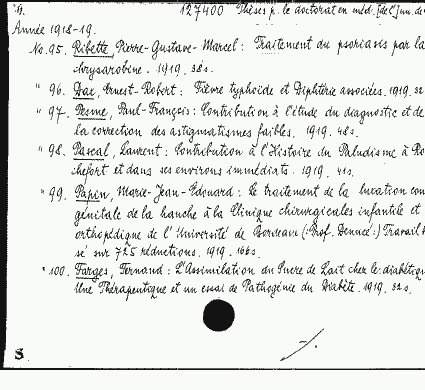 127400 Thèses p. le doctorat en méd. [de l'] Un. de
Année 1918-19.
No. 95. Ribette, Pierre-Gustave-Marcel: Traitement du psoriasis par la
chrysarobine. 1919. 38s.
" 96. Dax, Ernest-Robert: Fièvre typhoïde et Diphtérie associées. 1919. 32
" 97. Pesme, Paul-François: Contribution à l'étude du diagnostic et de
la correction des astigmatismes faibles. 1919. 48s.
" 98. Pascal, Laurent: Contribution à l'Histoire du Paludisme à Ro
chefort et dans ses environs immédiats. 1919. 41s.
" 99. Papin, Marie-Jean-Edouard: Le traitement de la luxation con
génitale de la hanche à la Clinique chirurgicales infantile et
orthopédique de l'Université de Bordeau (:Prof. Denucé:) Travail
sé sur 725 réductions. 1919. 166s.
" 100. Farges, Fernand: L'Assimilation du Sucre de Lait chez le diabétiqu
Une Thérapeutique et un essai de Pathogénie du Diabète. 1919. 32s.
S